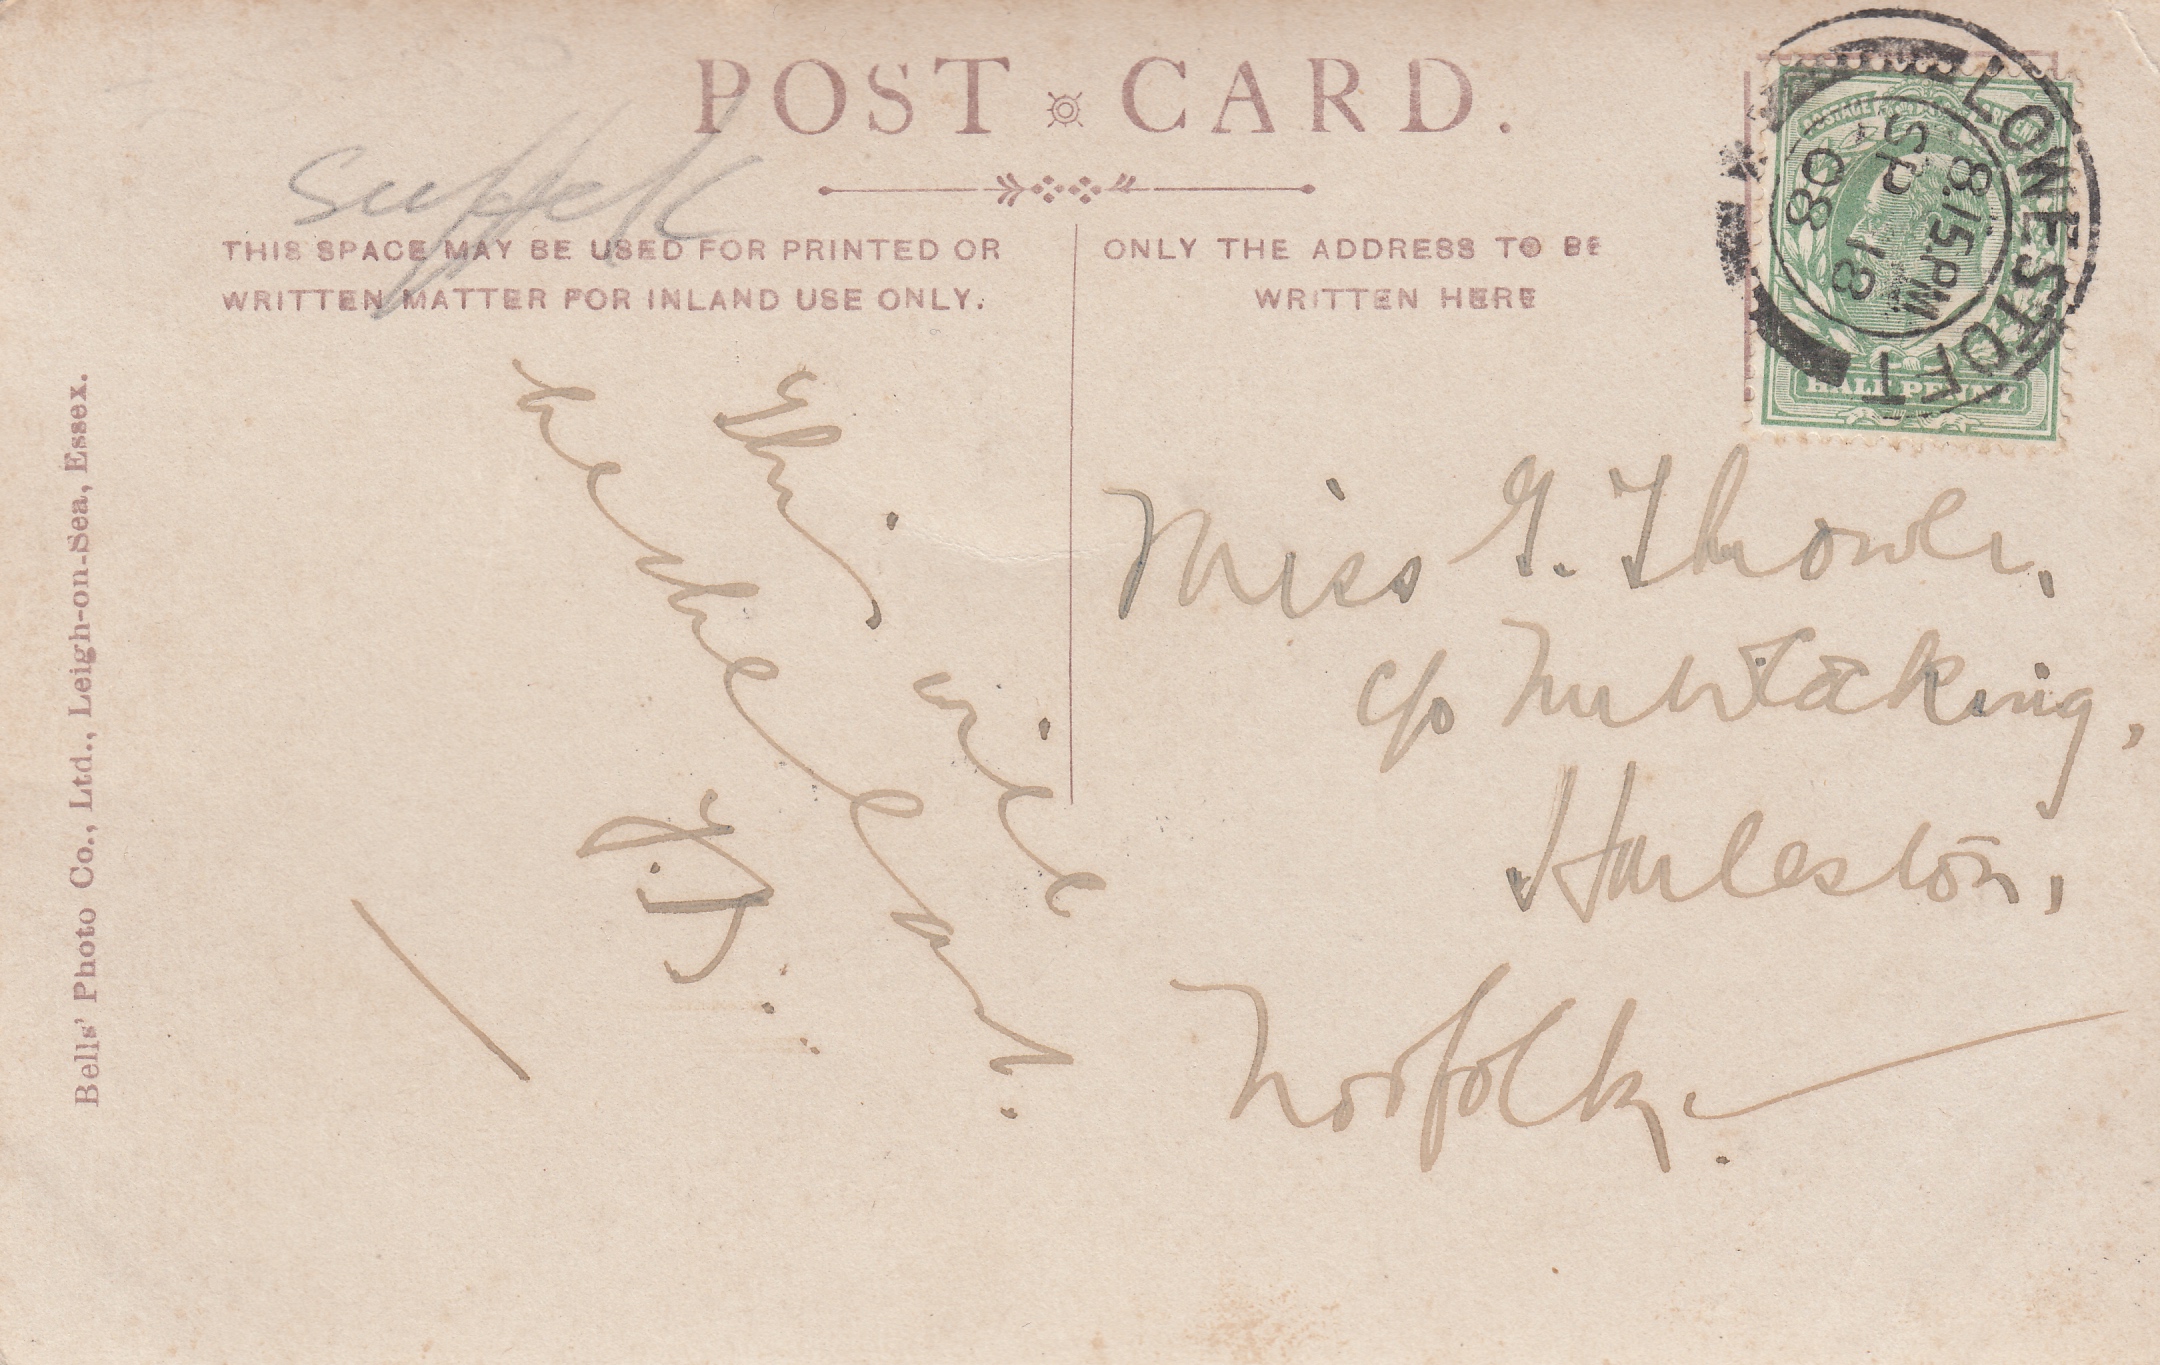 POST CARD.
Suffolk
THIS SPACE MAY BE USED FOR PRINTED OR
WRITTEN MATTER FOR INLAND USE ONLY.
ONLY THE ADDRESS TO BE
WRITTEN HERE
LOWESTOFT
8.15 PM
SP 18
08
HALFPENNY
Miss G. Thrower,
c/o
Harleston,
Norfolk.
This will
be the last.
Bells' Photo Co., Ltd., Leigh-on-Sea, Essex.